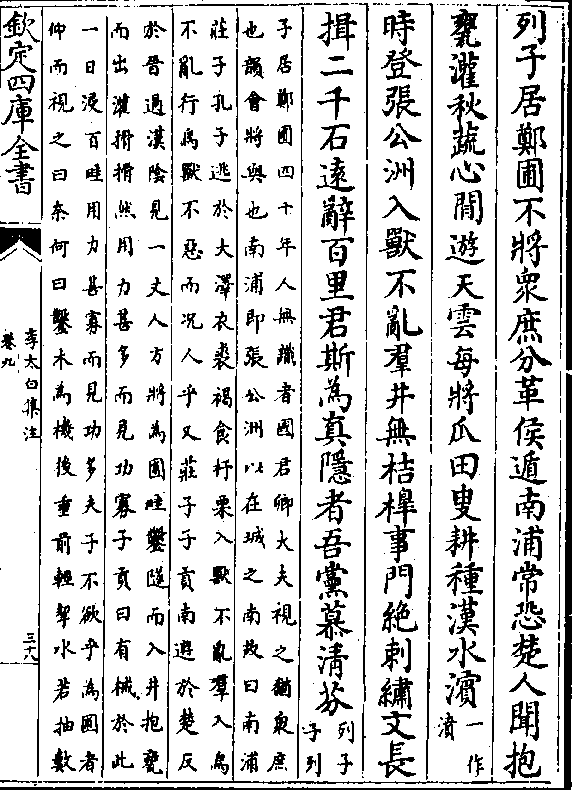 列子居鄭圃不將衆庶分革侯遁南浦常恐楚人聞抱
甕灌秋蔬心閒遊天雲每將瓜田叟耕種漢水濱一作濆
時登張公洲入獸不亂羣井無桔橰事門絶刺繡文長
揖二千石逺辭百里君斯為真隱者吾黨慕清芬列子子列
子居鄭圃四十年人無識者國君卿大夫視之猶衆庶
也韻會將與也南浦即張公洲以在城之南故曰南浦
莊子孔子逃於大澤衣裘褐食杼栗入獸不亂羣入鳥
不亂行鳥獸不惡而况人乎又莊子子貢南遊於楚反
於晉過漢隂見一丈人方將為圃畦鑿隧而入井抱甕
而出灌搰搰然用力甚多而見功寡子貢曰有械於此
一日浸百畦用力甚寡而見功多夫子不欲乎為圃者
仰而視之曰奈何曰鑿木為機後重前輕挈水若抽數
欽定四庫全書
李太白集注
卷九
三十八